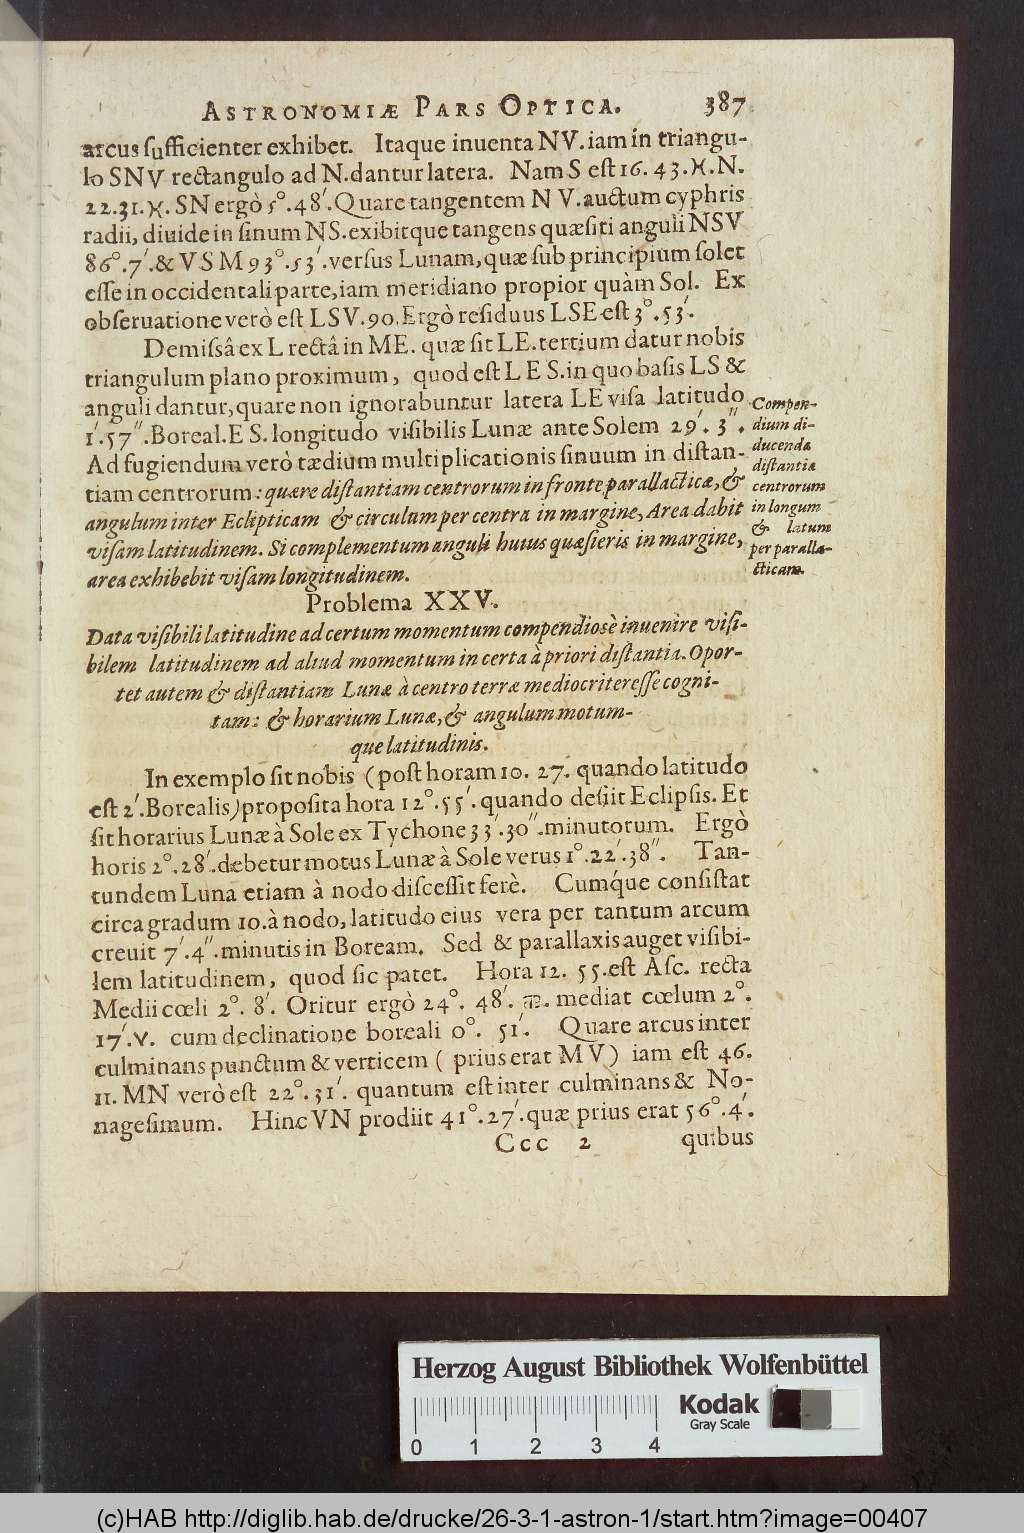 ASTRONOMIÆ PARS OPTICA. 387
arcus ſufficienter exhibet. Itaque inuenta NV. iam in triangu-
lo SNV rectangulo ad N. dantur latera. Nam S eſt 16. 43. ♓. N.
22. 31. ♓. SN ergò 5°. 48′. Quare tangentem NV. auctum cyphris
radii, diuide in ſinum NS. exibitque tangens quæſiti anguli NSV
86°. 7′. & VSM 93°. 53′. verſus Lunam, quæ ſub principium ſolet
eſſe in occidentali parte, iam meridiano propior quàm Sol. Ex
obſeruatione verò eſt LSV. 90. Ergò reſiduus LSE eſt 3°. 53′.
Demiſsâ ex L rectâ in ME. quæ ſit LE. tertium datur nobis
triangulum plano proximum, quod eſt LES. in quo baſis LS &
anguli dantur, quare non ignorabuntur latera LE viſa latitudo
1′. 57″. Boreal. ES. longitudo viſibilis Lunæ ante Solem 29′. 3″.
Ad fugiendum verò tædium multiplicationis ſinuum in diſtan-
tiam centrorum: quære diſtantiam centrorum in fronte parallacticæ, &
angulum inter Eclipticam & circulum per centra in margine, Area dabit
viſam latitudinem. Si complementum anguli huius quæſieris in margine,
area exhibebit viſam longitudinem.
Compen-
dium di-
ducendæ
diſtantiæ
centrorum
in longum
& latum
per paralla-
cticam.
Problema XXV.
Data viſibili latitudine ad certum momentum compendiosè inuenire viſi-
bilem latitudinem ad aliud momentum in certa à priori diſtantia. Opor-
tet autem & diſtantiam Lunæ à centro terræ mediocriter eſſe cogni-
tam: & horarium Lunæ, & angulum motum-
que latitudinis.
In exemplo ſit nobis (poſt horam 10. 27. quando latitudo
eſt 2′. Borealis) propoſita hora 12°. 55′. quando deſiit Eclipſis. Et
ſit horarius Lunæ à Sole ex Tychone 33′. 30″. minutorum. Ergò
horis 2°. 28′. debetur motus Lunæ à Sole verus 1°. 22′. 38″. Tan-
tundem Luna etiam à nodo diſceſſit ferè. Cumq́ue conſiſtat
circa gradum 10. à nodo, latitudo eius vera per tantum arcum
creuit 7′. 4″. minutis in Boream. Sed & parallaxis auget viſibi-
lem latitudinem, quod ſic patet. Hora 12. 55. eſt Aſc. recta
Medii cœli 2°. 8′. Oritur ergò 24°. 48′. ♋. mediat cœlum 2°.
17′. ♈. cum declinatione boreali 0°. 51′. Quare arcus inter
culminans punctum & verticem (prius erat MV) iam eſt 46.
11. MN verò eſt 22°. 31′. quantum eſt inter culminans & No-
nageſimum. Hinc VN prodiit 41°. 27′. quæ prius erat 56°. 4′.
Ccc 2 quibus
Herzog August Bibliothek Wolfenbüttel
Kodak
Gray Scale
0 1 2 3 4
(c)HAB http://diglib.hab.de/drucke/26-3-1-astron-1/start.htm?image=00407